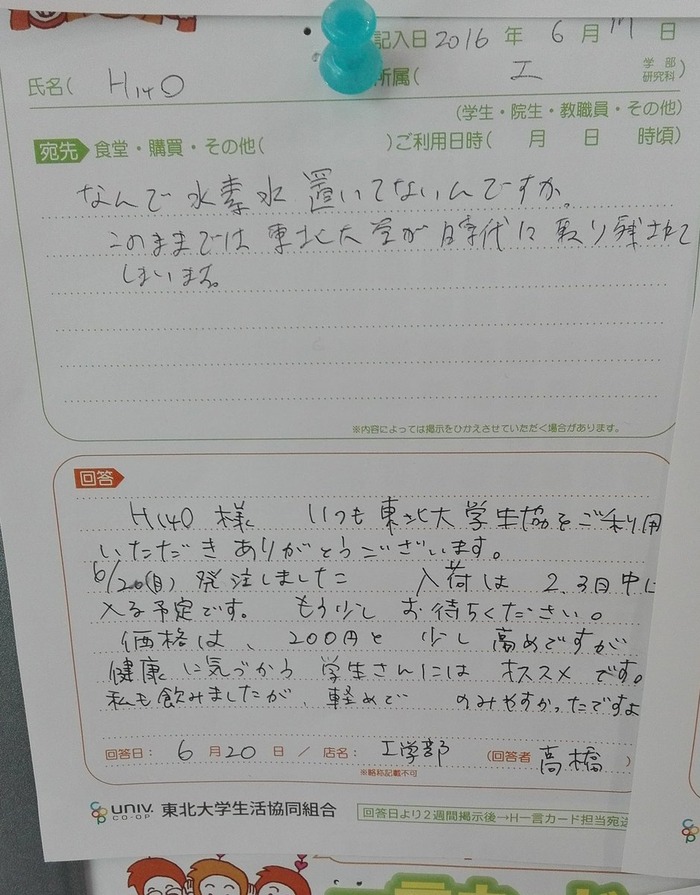 記入日 2016 年 6 月 17 日
氏名( H140 所属( 工 学部 研究科)
(学生・院生・教職員・その他)
宛先 食堂・購買・その他( )ご利用日時( 月 日 時頃)
なんで水素水置いてないんですか。
このままでは東北大学が時代に取り残されて
しまいます。
※内容によっては掲示をひかえさせていただく場合があります。
回答
H140 様 いつも東北大学生協をご利用
いただきありがとうございます。
6/20(月) 発注しました 入荷は 2.3日中に
入る予定です。 もう少し お待ちください。
価格は、200円と 少し 高めですが
健康に気づかう 学生さんには オススメ です。
私も飲みましたが、軽めで のみやすかったですよ
回答日: 6 月 20 日 / 店名: 工学部 (回答者 高橋 )
※略称記載不可
co-op UNIV. CO-OP 東北大学生活協同組合 回答日より2週間掲示後→H一言カード担当宛